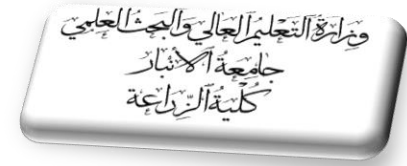 وزارة التعليم العالي والبحث العلمي
جامعة الأنبار
كلية الزراعة